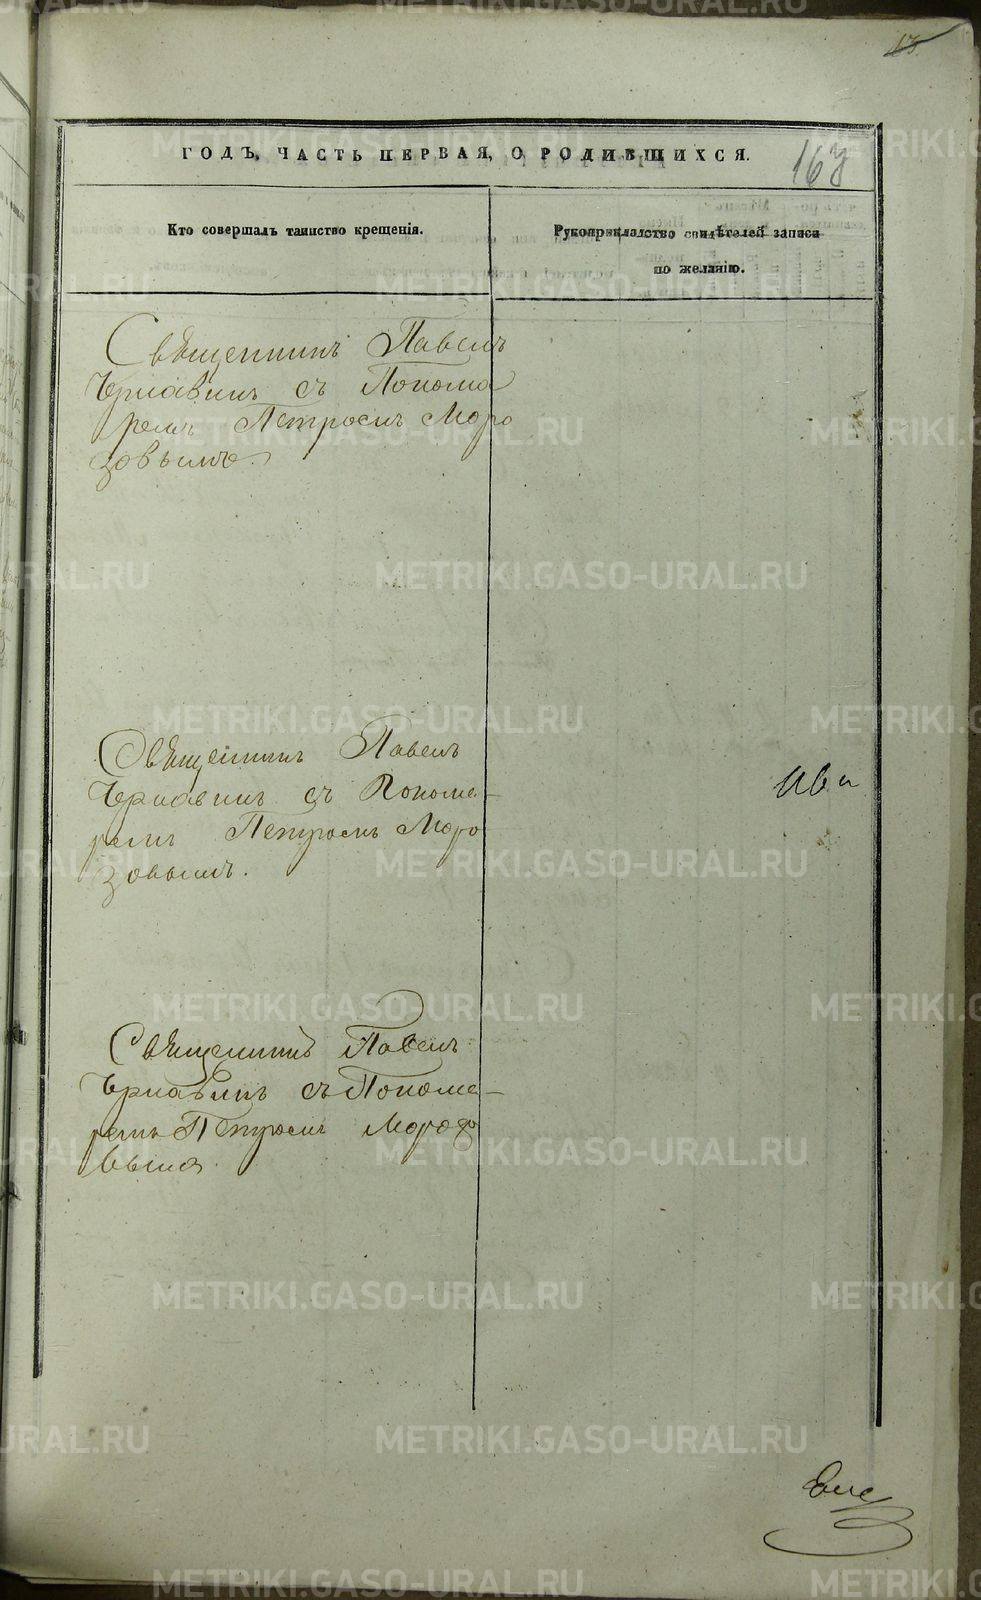 ГОДЪ, ЧАСТЬ ПЕРВАЯ, О РОДИВШИХСЯ.
Кто совершалъ таинство крещенія.
Рукоприкладство свидѣтелей записи
по желанію.
Священникъ Павелъ
Чернавинъ съ Понома
ремъ Петромъ Моро
зовымъ.
Священникъ Павелъ
Чернавинъ съ Понома-
ремъ Петромъ Моро
зовымъ.
Священникъ Павелъ
Чернавинъ съ Понома-
ремъ Петромъ Морозо
вымъ.
METRIKI.GASO-URAL.RU